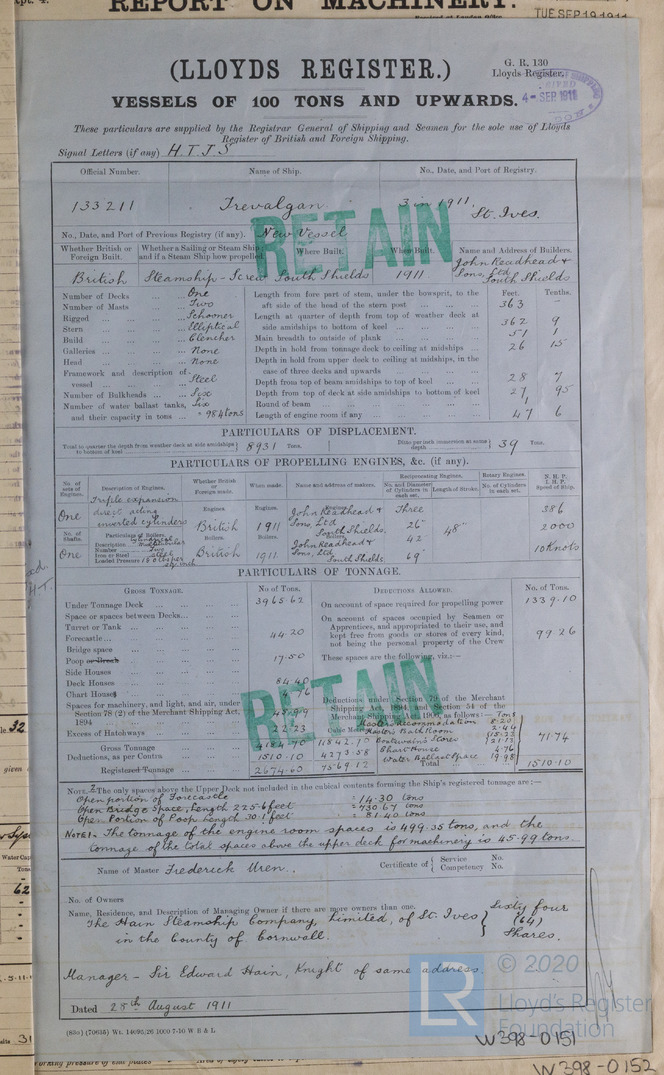 REPORT ON MACHINERY.
TUE. SEP 19 1911
(LLOYDS REGISTER.)
G. R. 130
Lloyds Register.
4-SEP 1911
VESSELS OF 100 TONS AND UPWARDS.
These particulars are supplied by the Registrar General of Shipping and Seamen for the sole use of Lloyds
Register of British and Foreign Shipping.
Signal Letters (if any) H.T.J.S
Official Number. Name of Ship. No., Date, and Port of Registry.
133211 Trevalgan 3 in 1911, St. Ives.
No., Date, and Port of Previous Registry (if any). New Vessel
RETAIN
Whether British or Foreign Built. Whether a Sailing or Steam Ship, and if a Steam Ship how propelled Where Built. When Built. Name and Address of Builders.
British Steamship-Screw South Shields 1911 John Readhead & Sons, Ltd South Shields
Feet. Tenths.
Number of Decks One
Number of Masts Two
Rigged Schooner
Stern Elliptical
Build Clencher
Galleries None
Head None
Framework and description of vessel Steel
Number of Bulkheads Six
Number of water ballast tanks, and their capacity in tons Six = 984 tons
Length from fore part of stem, under the bowsprit, to the aft side of the head of the stern post 363
Length at quarter of depth from top of weather deck at side amidships to bottom of keel 362 9
Main breadth to outside of plank 51 1
Depth in hold from tonnage deck to ceiling at midships 26 15
Depth in hold from upper deck to ceiling at midships, in the case of three decks and upwards
Depth from top of beam amidships to top of keel 28 7
Depth from top of deck at side amidships to bottom of keel 27 95
Round of beam 1
Length of engine room if any 47 6
PARTICULARS OF DISPLACEMENT.
Total to quarter the depth from weather deck at side amidships to bottom of keel 8931 Tons. Ditto per inch immersion at same depth 39 Tons.
PARTICULARS OF PROPELLING ENGINES, &c. (if any).
No. of sets of Engines. Description of Engines. Whether British or Foreign made. When made. Name and address of makers. Reciprocating Engines. Rotary Engines. N. H. P. I. H. P. Speed of Ship.
No. and Diameter of Cylinders in each set. Length of Stroke. No. of Cylinders in each set.
One Triple expansion direct acting inverted cylinders Engines. British Engines. 1911 John Readhead & Sons, Ltd South Shields. Three 26" 42 69" 48" 386 2000 10 Knots
No. of Shafts. Particulars of Boilers.
One Description Number Two Iron or Steel Steel Loaded Pressure 180 lbs per sq inch Boilers. British Boilers. 1911 John Readhead & Sons, Ltd South Shields
PARTICULARS OF TONNAGE.
GROSS TONNAGE. No. of Tons. DEDUCTIONS ALLOWED. No. of Tons.
Under Tonnage Deck 3965.62
Space or spaces between Decks
Turret or Tank
Forecastle 44.20
Bridge space
Poop or Break 17.50
Side Houses
Deck Houses 84.40
Chart House 4.76
Spaces for machinery, and light, and air, under Section 78 (2) of the Merchant Shipping Act, 1894 45.99
Excess of Hatchways 22.23
Gross Tonnage 4184.70 11842.70
Deductions, as per Contra 1510.10 4273.58
Registered Tonnage 2674.60 7569.12
On account of space required for propelling power 1339.10
On account of spaces occupied by Seamen or Apprentices, and appropriated to their use, and kept free from goods or stores of every kind, not being the personal property of the Crew 99.26
These spaces are the following, viz.:—
RETAIN
Deductions under Section 79 of the Merchant Shipping Act, 1894, and Section 54 of the Merchant Shipping Act, 1906, as follows:— Tons
Master's Accommodation 8.20
Master's Bath Room 2.44
Boatswain's Stores
Chart House 4.76
Water Ballast Space 19.98
71.74
Total 1510.10
NOTE 2 The only spaces above the Upper Deck not included in the cubical contents forming the Ship's registered tonnage are:—
Open portion of Forecastle = 14.30 tons
Open Bridge Space, Length 225.6 feet = 730.67 tons
Open Portion of Poop Length 30.1 feet = 81.40 tons
NOTE 1- The tonnage of the engine room spaces is 499.35 tons, and the
tonnage of the total spaces above the upper deck for machinery is 45.99 tons.
Name of Master Frederick Uren. Certificate of Service No. Competency No.
No. of Owners
Name, Residence, and Description of Managing Owner if there are more owners than one.
The Hain Steamship Company, Limited, of St. Ives
in the County of Cornwall. Sixty four (64) Shares.
Manager - Sir Edward Hain, Knight of same address.
Dated 28th August 1911
(830) (70635) Wt. 14695/26 1000 7-10 W B & L
© 2020
LR
Lloyd's Register
Foundation
W398-0151
W398-0152